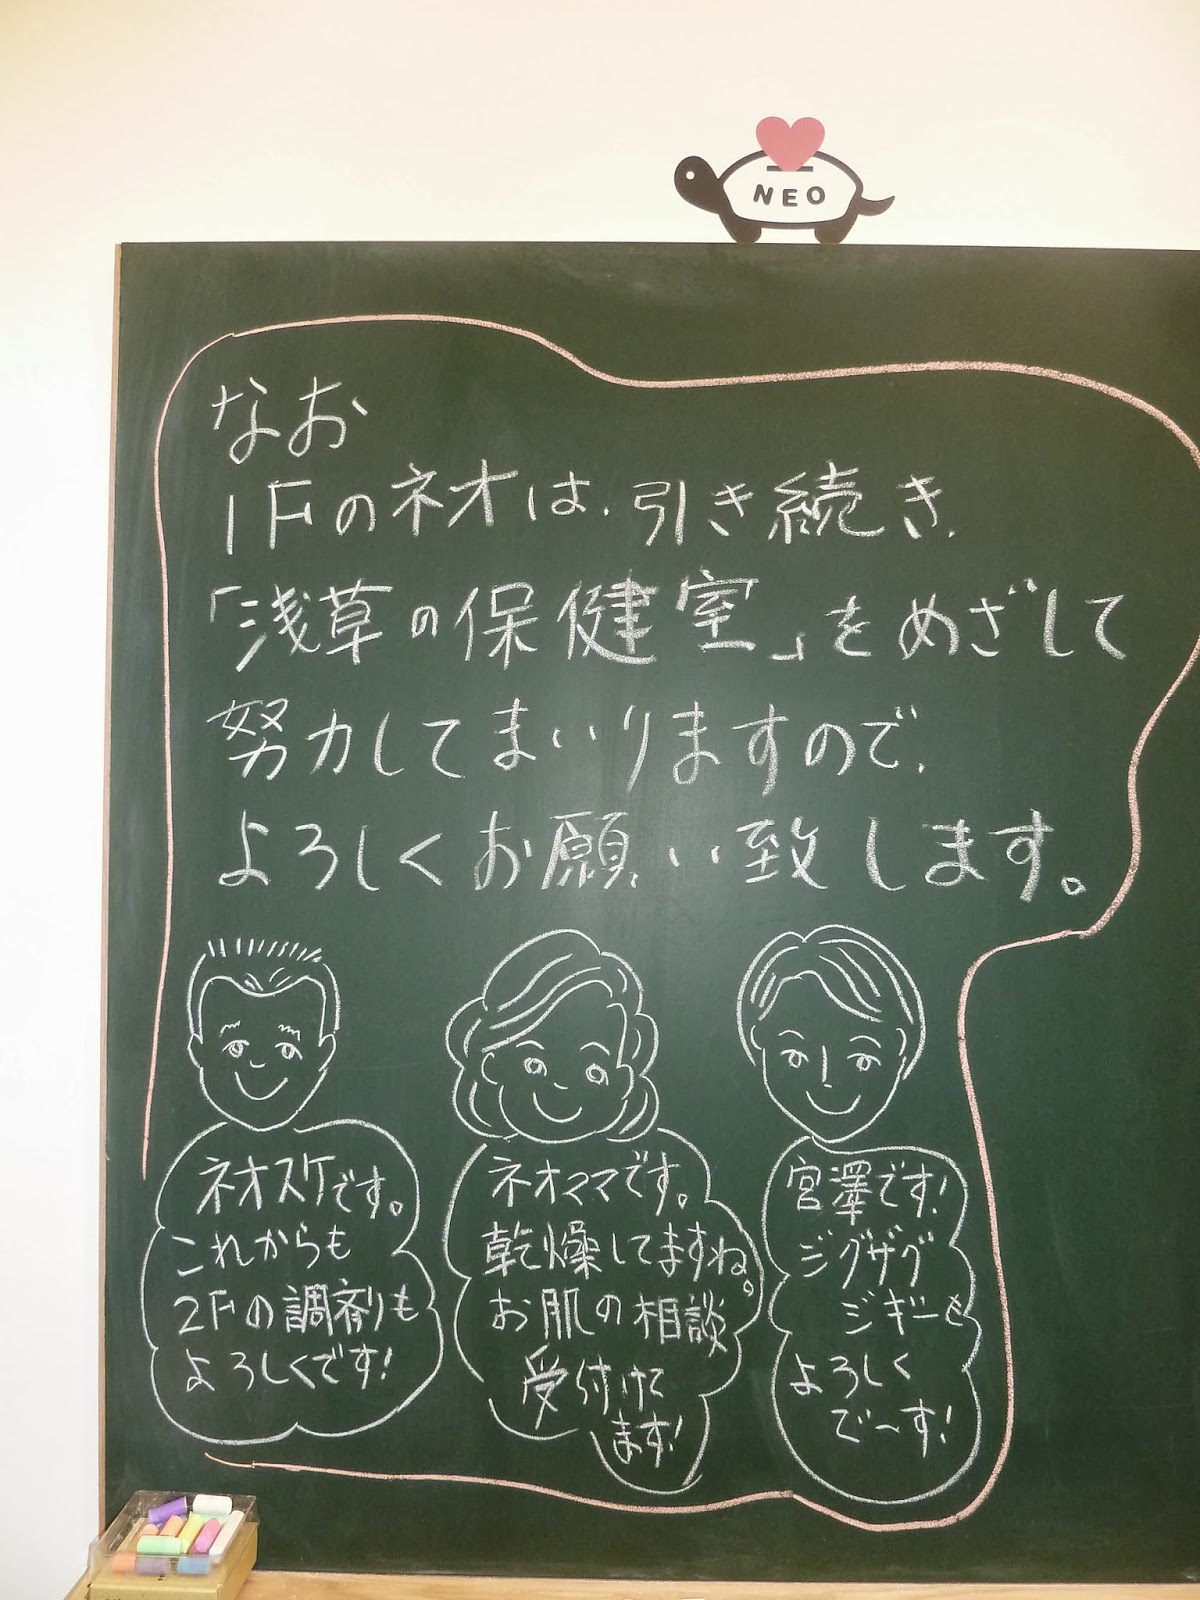 NEO
なお
1Fのネオは、引き続き、
「浅草の保健室」をめざして
努力してまいりますので、
よろしくお願い致します。
ネオスケです。
これからも
2Fの調剤も
よろしくです!
ネオママです。
乾燥してますね。
お肌の相談
受付けて
ます!
宮澤です!
ジグザグ
ジギーも
よろしく
で〜す!